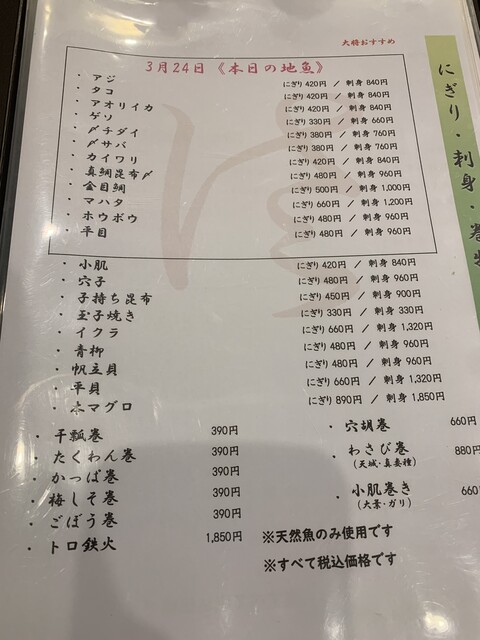 大将おすすめ
にぎり・刺身・巻物
3月24日《本日の地魚》
・アジ にぎり420円 / 刺身840円
・タコ にぎり420円 / 刺身840円
・アオリイカ にぎり420円 / 刺身840円
・ゲソ にぎり330円 / 刺身660円
・〆チダイ にぎり380円 / 刺身760円
・〆サバ にぎり380円 / 刺身760円
・カイワリ にぎり420円 / 刺身840円
・真鯛昆布〆 にぎり480円 / 刺身960円
・金目鯛 にぎり500円 / 刺身1,000円
・マハタ にぎり660円 / 刺身1,200円
・ホウボウ にぎり480円 / 刺身960円
・平目 にぎり480円 / 刺身960円
・小肌 にぎり420円 / 刺身840円
・穴子 にぎり480円 / 刺身960円
・子持ち昆布 にぎり450円 / 刺身900円
・玉子焼き にぎり330円 / 刺身330円
・イクラ にぎり660円 / 刺身1,320円
・青柳 にぎり480円 / 刺身960円
・帆立貝 にぎり480円 / 刺身960円
・平貝 にぎり660円 / 刺身1,320円
・本マグロ にぎり890円 / 刺身1,850円
・干瓢巻 390円
・たくわん巻 390円
・かっぱ巻 390円
・梅しそ巻 390円
・ごぼう巻 390円
・トロ鉄火 1,850円
・穴胡巻 660円
・わさび巻 880円
(天城・真妻種)
・小肌巻き 660
(大葉・ガリ)
※天然魚のみ使用です
※すべて税込価格です